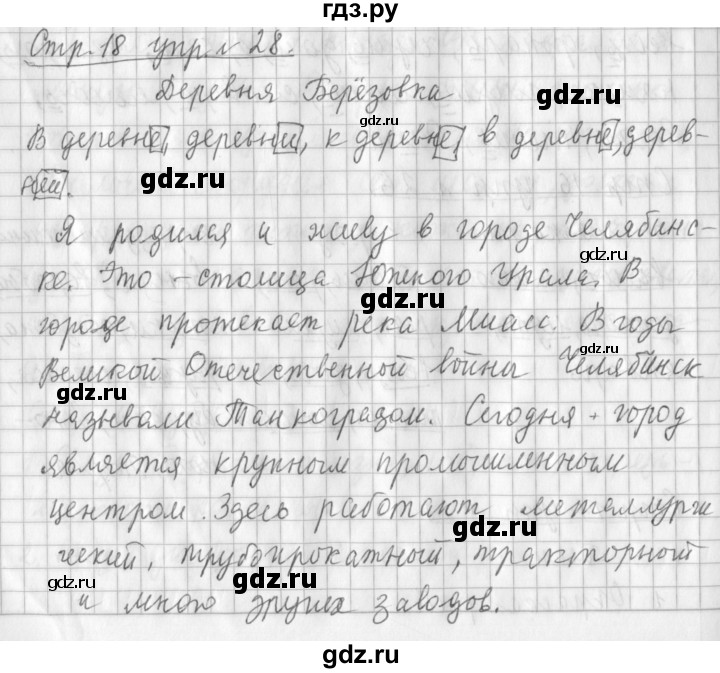 гдз.ру
Стр. 18 упр. № 28.
Деревня Берёзовка
gdz.ru
В деревне, деревни, к деревне, в деревне, дерев-
ней.
gdz.ru
gdz.ru
Я родился и живу в городе Челябинс-
gdz.ru
ке. Это - столица Южного Урала. В
gdz.ru
городе протекает река Миасс. В годы
gdz.ru
Великой Отечественной войны Челябинск
называли Танкоградом. Сегодня - город
gdz.ru
gdz.ru
является крупным промышленным
центром. Здесь работают металлурги
gdz.ru
ческий, трубопрокатный, тракторный
gdz.ru
gdz.ru
и много других заводов.
gdz.ru
gdz.ru